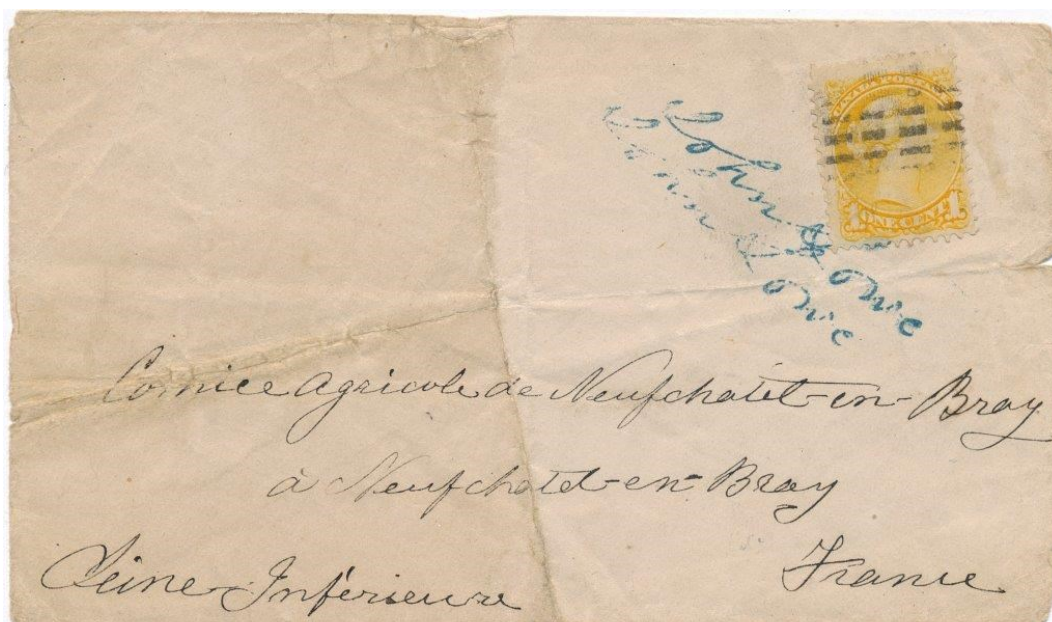 CANADA POSTAGE
1 ONE CENT 1
John Lowe
John Lowe
Comice Agricole de Neufchatel-en-Bray
à Neufchatel-en-Bray
Seine-Inférieure France